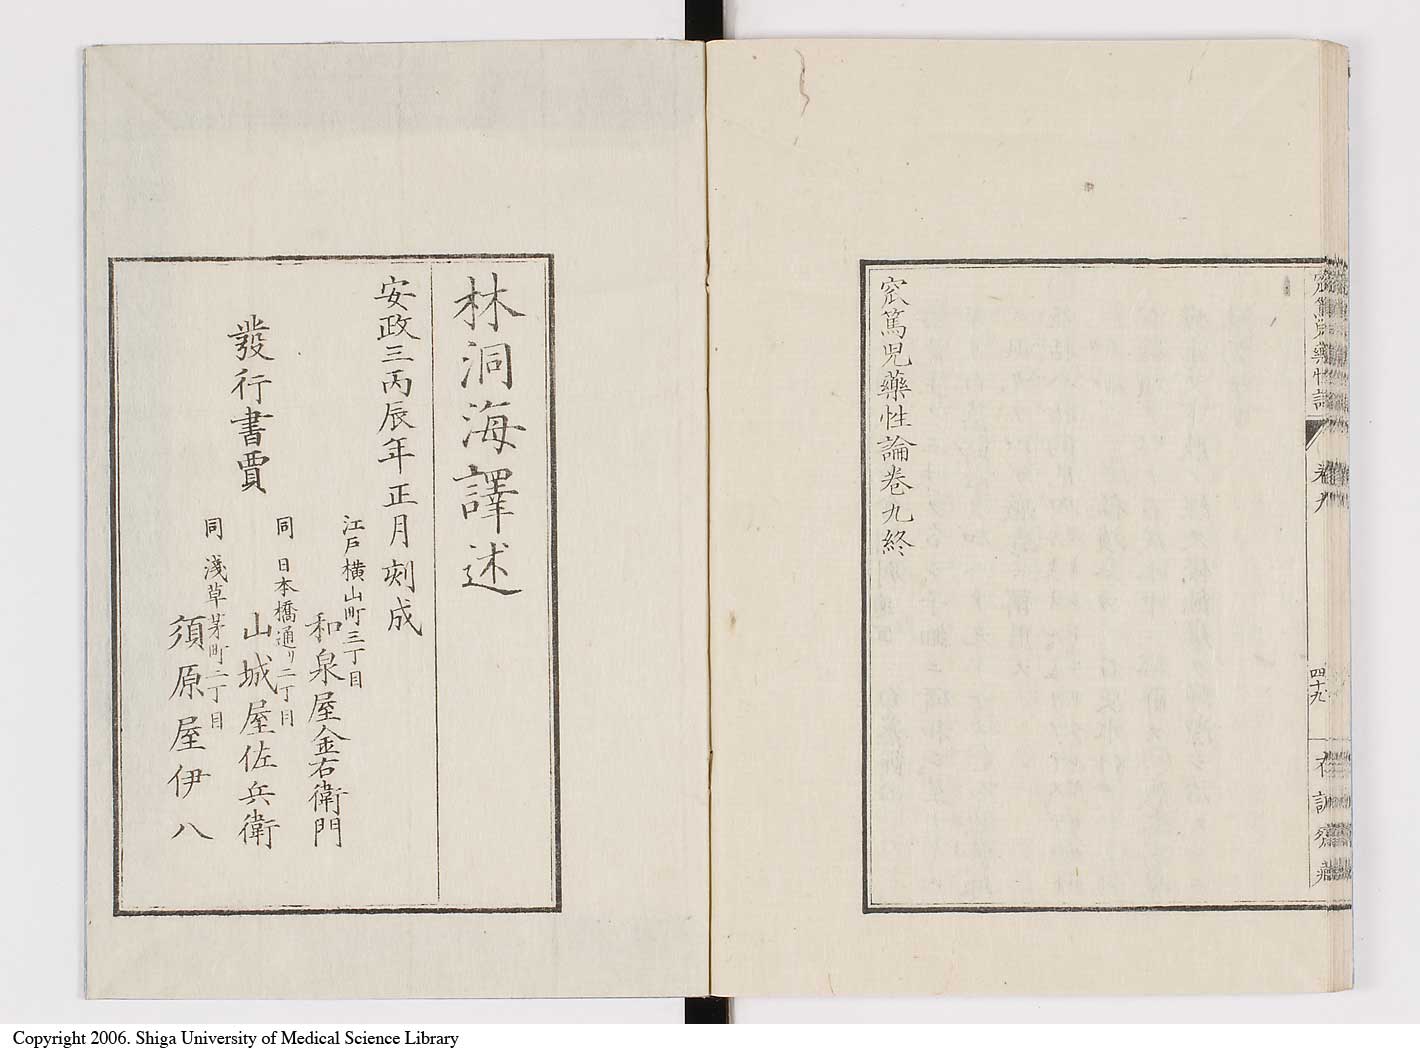 窊篤児藥性論
卷九
四十九
存誠齋藏
窊篤児藥性論卷九終
林洞海譯述
安政三丙辰年正月刻成
發行書賈
江戸横山町三丁目
和泉屋金右衛門
同 日本橋通リ二丁目
山城屋佐兵衛
同 淺草茅町二丁目
須原屋伊八
Copyright 2006. Shiga University of Medical Science Library